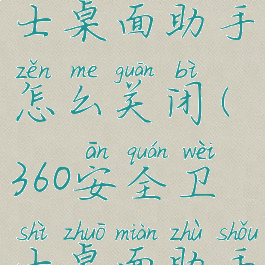 士桌面助手
zěn me guān bì
怎么关闭(
ān quán wèi
360安全卫
shì zhuō miàn zhù shǒu
士桌面助手